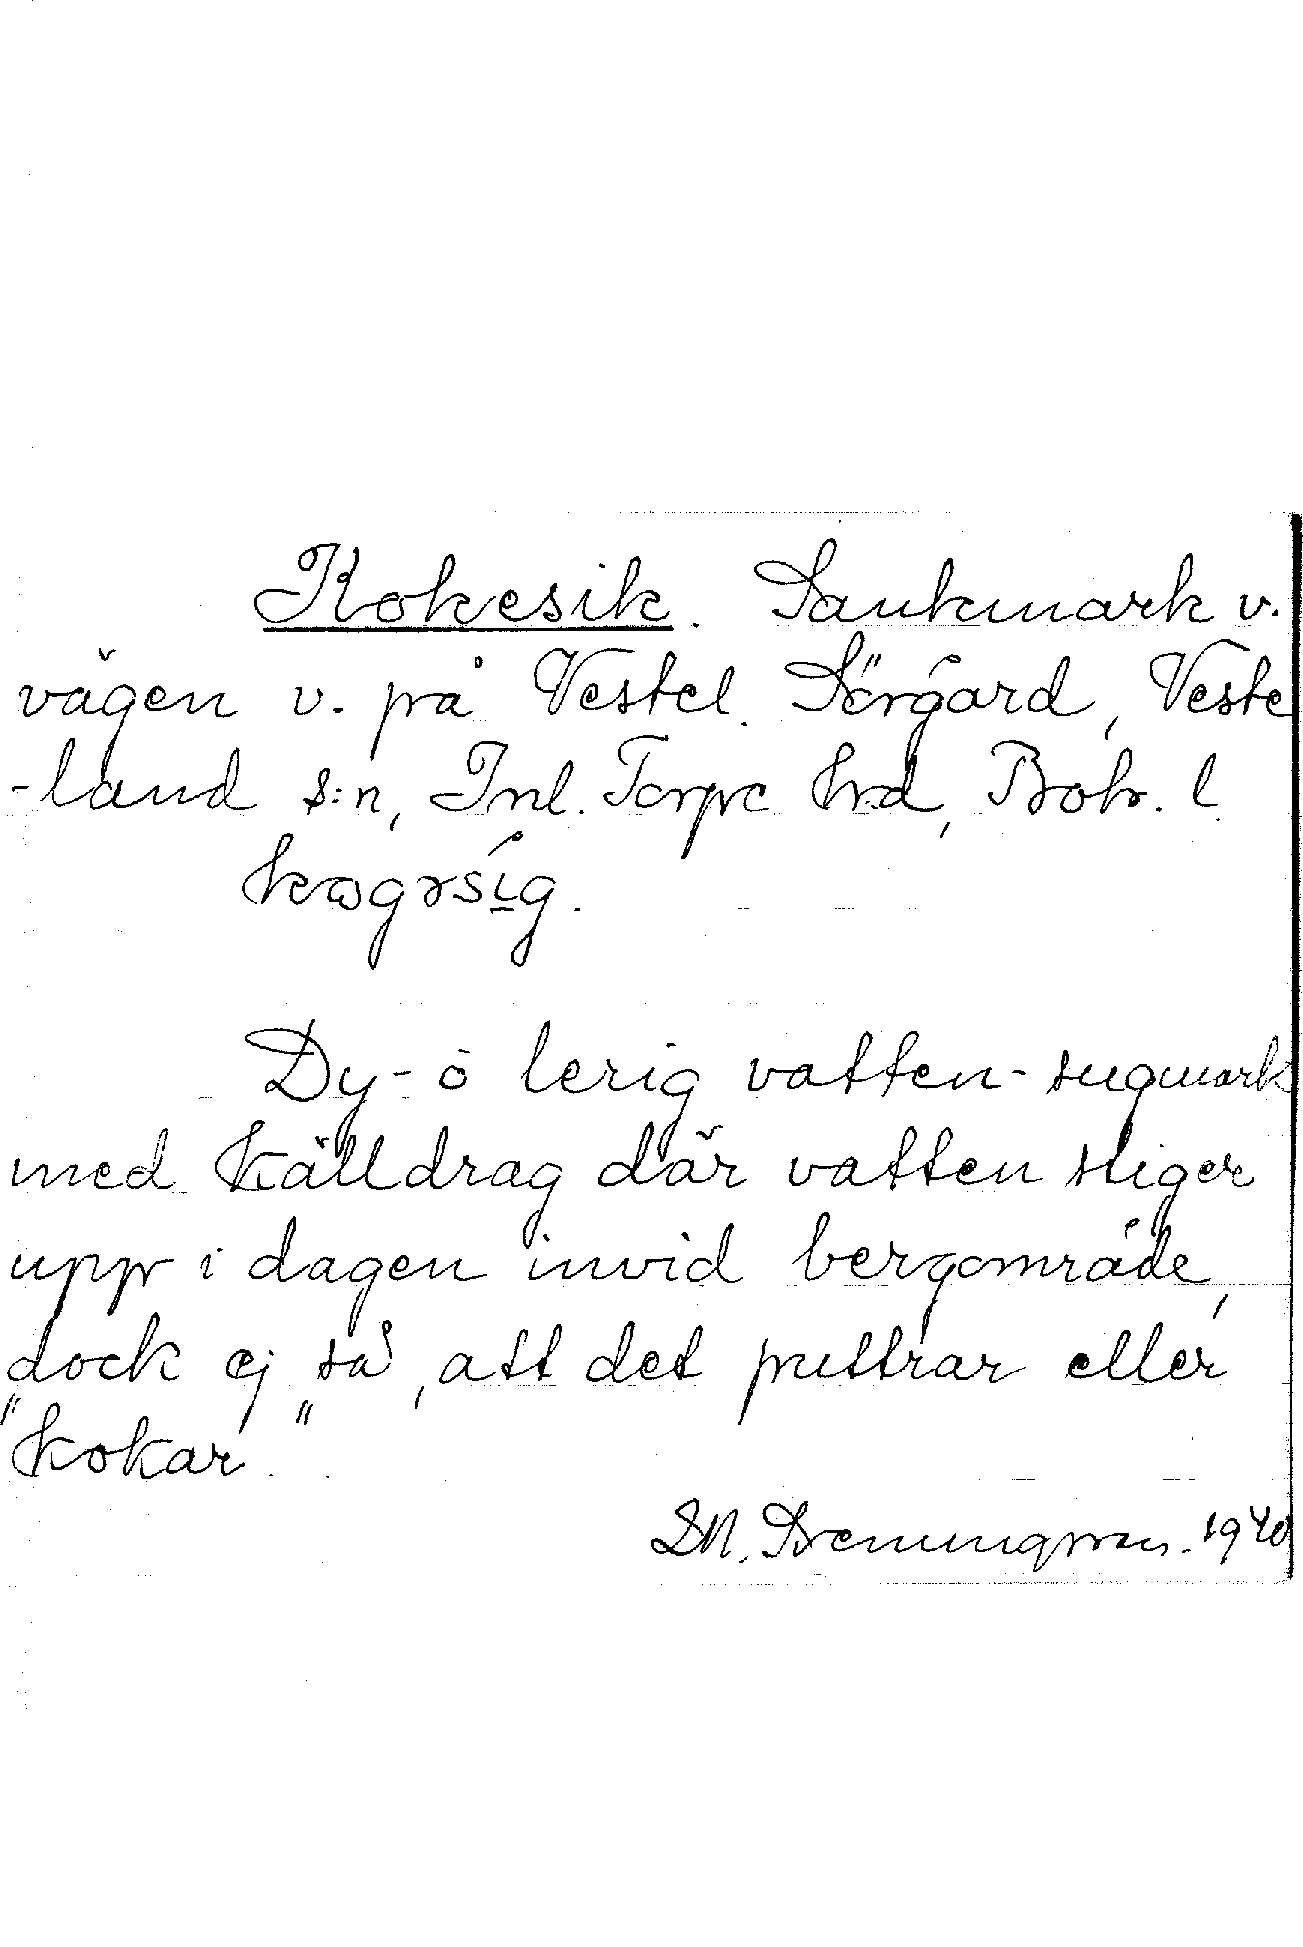 Kokesik. Sankmark v.
vägen v. på Vestel. Sörgård, Veste
-land s:n, Inl. Torpe hrd, Boh. l
kωgɤsíg.
Dy- o lerig vatten- sugmark
med källdrag där vatten stiger
upp i dagen invid bergområde,
dock ej så, att det puttrar eller
"kokar".
1940